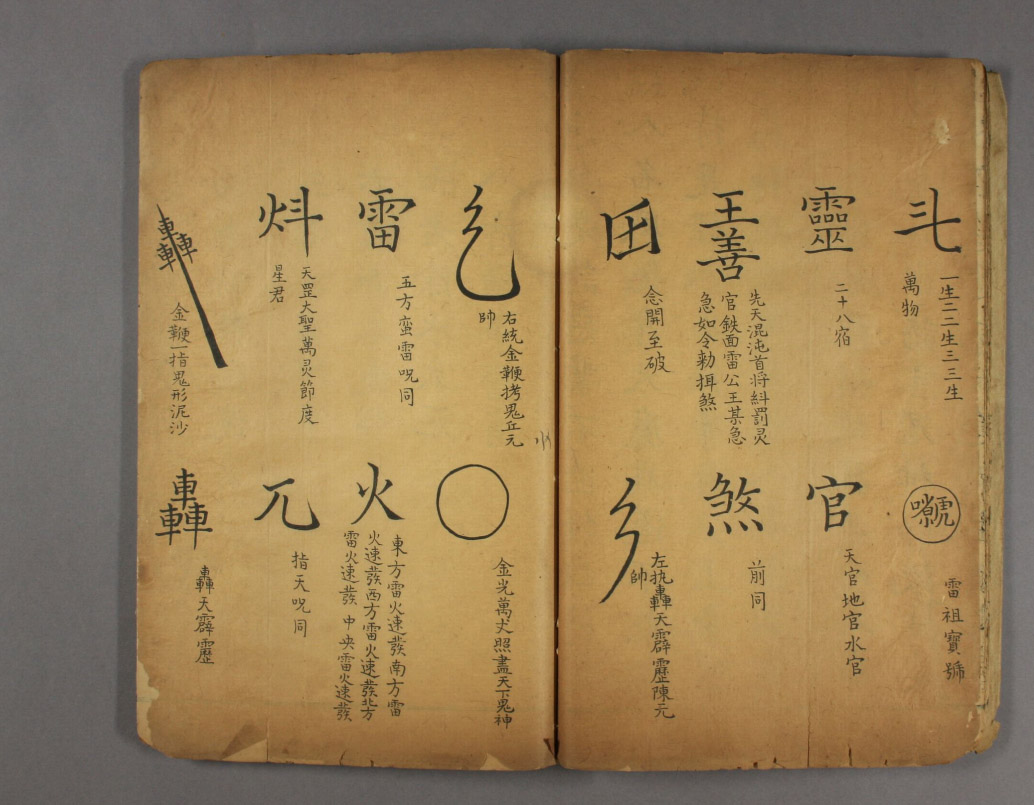 一生二二生三三生
萬物
雷祖寶號
靈
二十八宿
官
天官地官水官
王善
先天混沌首将糾罰灵
官鉄面雷公王某急
急如令勅搑煞
煞
前同
念開至破
左执轟天霹靂陳元
帥
右統金鞭拷鬼丘元
帥
金光萬丈照盡天下鬼神
雷
五方蛮雷咒同
火
東方雷火速發南方雷
火速發西方雷火速發北方
雷火速發中央雷火速發
炓
天罡大聖萬灵節度
星君
兀
指天咒同
轟
金鞭一指鬼形泥沙
轟
轟天霹靂